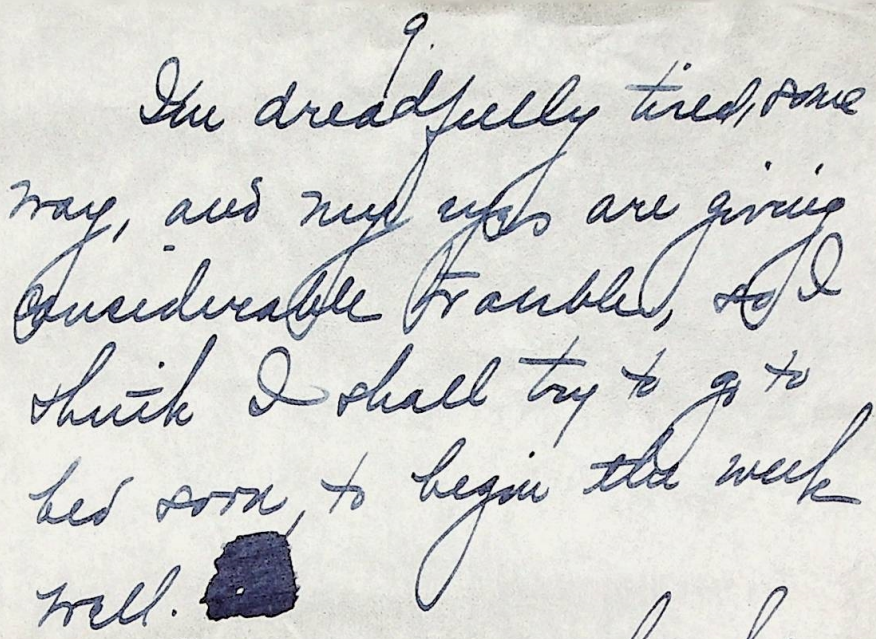 9.
I'm dreadfully tired, some
way, and my eyes are giving
considerable trouble, so I
think I shall try to go to
bed soon, to begin the week
well.